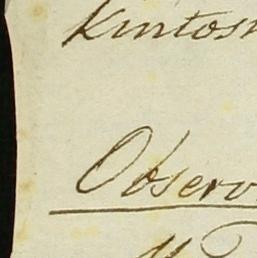 Kintosh
Observ